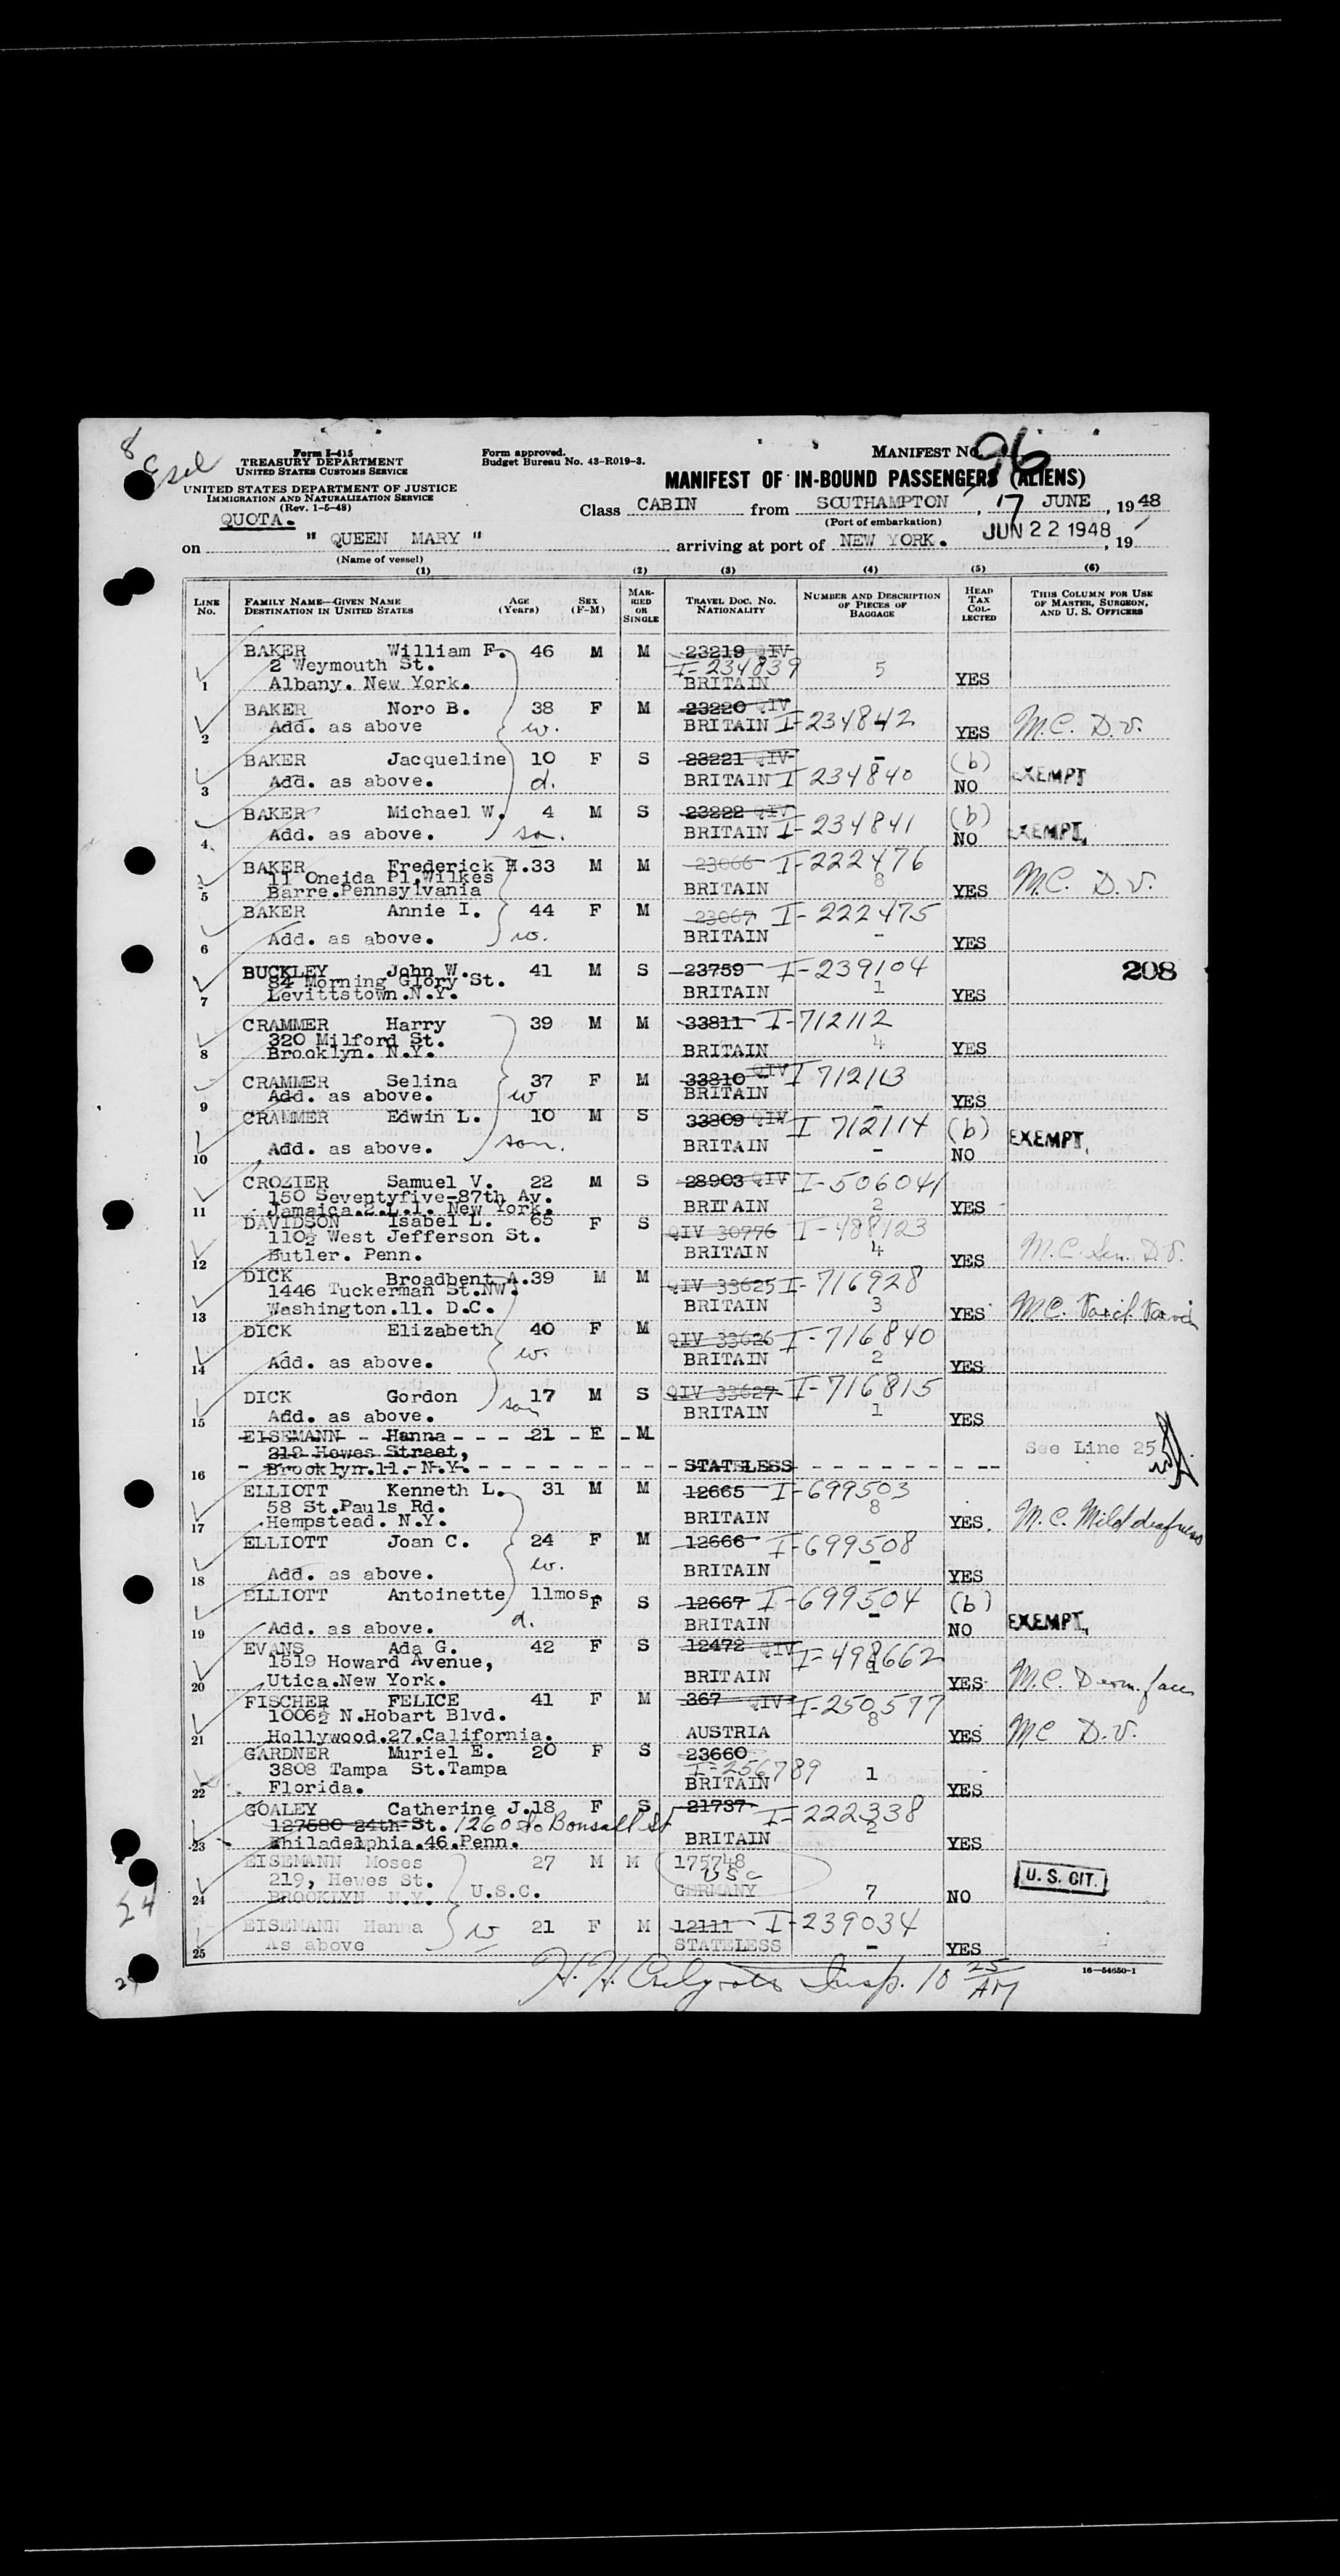 8
Form I-415
TREASURY DEPARTMENT
UNITED STATES CUSTOMS SERVICE
UNITED STATES DEPARTMENT OF JUSTICE
IMMIGRATION AND NATURALIZATION SERVICE
(Rev. 1-5-48)
QUOTA.
Form approved.
Budget Bureau No. 43-R019-3.
MANIFEST No. 96
MANIFEST OF IN-BOUND PASSENGERS (ALIENS)
Class CABIN from SOUTHAMPTON, 17 JUNE, 1948
(Port of embarkation)
on " QUEEN MARY " arriving at port of NEW YORK. JUN 22 1948, 19
(Name of vessel)
(1) (2) (3) (4) (5) (6)
LINE No. FAMILY NAME—GIVEN NAME DESTINATION IN UNITED STATES AGE (Years) SEX (F-M) MARRIED OR SINGLE TRAVEL DOC. NO. NATIONALITY NUMBER AND DESCRIPTION OF PIECES OF BAGGAGE HEAD TAX COLLECTED THIS COLUMN FOR USE OF MASTER, SURGEON, AND U. S. OFFICERS
BAKER William F. 46 M M 23219 QIV
2 Weymouth St. I-234839 5
1 Albany. New York. BRITAIN YES
BAKER Noro B. 38 F M 23220 QIV
2 Add. as above w. BRITAIN I-234842 - YES M.C. D.V.
BAKER Jacqueline 10 F S 23221 QIV - (b)
3 Add. as above. d. BRITAIN I 234840 NO EXEMPT
BAKER Michael W. 4 M S 23222 QIV (b)
4 Add. as above. so. BRITAIN I-234841 NO EXEMPT.
BAKER Frederick H. 33 M M 23066 I-222476
11 Oneida Pl.Wilkes 8
5 Barre.Pennsylvania BRITAIN YES M.C. D.V.
BAKER Annie I. 44 F M 23067 I-222475
6 Add. as above. w. BRITAIN - YES
BUCKLEY John W. 41 M S 23759 I-239104 208
84 Morning Glory St.
7 Levittstown.N.Y. BRITAIN 1 YES
CRAMMER Harry 39 M M 33811 I-712112
320 Milford St. 4
8 Brooklyn. N.Y. BRITAIN YES
CRAMMER Selina 37 F M 33810 QIV I 712113
9 Add. as above. w BRITAIN - YES
CRAMMER Edwin L. 10 M S 33809 QIV I 712114 (b)
10 Add. as above. son. BRITAIN - NO EXEMPT.
CROZIER Samuel V. 22 M S 28903 QIV I-506041
150 Seventyfive-87th Av. 2
11 Jamaica.2.L.I. New York. BRITAIN YES
DAVIDSON Isabel L. 65 F S QIV 30776 I-488123
110½ West Jefferson St. 4
12 Butler. Penn. BRITAIN YES M.C. Sen. D.V.
DICK Broadbent A. 39 M M QIV 33625 I-716928
1446 Tuckerman St.NW.
13 Washington.11. D.C. BRITAIN 3 YES M.C.
DICK Elizabeth 40 F M QIV 33626 I-716840
14 Add. as above. w. BRITAIN 2 YES
DICK Gordon 17 M S QIV 33627 I-716815
15 Add. as above. son BRITAIN 1 YES
EISEMANN Hanna 21 F M
212 Hewes Street, See Line 25
16 Brooklyn.11. N.Y. STATELESS
ELLIOTT Kenneth L. 31 M M 12665 I-699503
58 St.Pauls Rd. 8
17 Hempstead. N.Y. BRITAIN YES. M.C. Mild deafness
ELLIOTT Joan C. 24 F M 12666 I-699508
18 Add. as above. w. BRITAIN - YES
ELLIOTT Antoinette 11mos. F S 12667 I-699504 (b)
19 Add. as above. d. BRITAIN - NO EXEMPT.
EVANS Ada G. 42 F S 12472 QIV I-498662
1519 Howard Avenue, 1
20 Utica.New York. BRITAIN YES M.C. Derm. face
FISCHER FELICE 41 F M 367 QIV I-250577
1006½ N.Hobart Blvd. 8
21 Hollywood.27.California. AUSTRIA YES MC D.V.
GARDNER Muriel E. 20 F S 23660
3808 Tampa St.Tampa I-256789 1
22 Florida. BRITAIN YES
GOALEY Catherine J. 18 F S 21737 I-222338
127580 24th St. 1260 So Bonsall St 2
23 Philadelphia.46.Penn. BRITAIN YES
EISEMANN Moses 27 M M 175748
219, Hewes St. USC U. S. CIT.
24 BROOKLYN N.Y. U.S.C. GERMANY 7 NO
EISEMANN Hanna 21 F M 12111 I-239034
25 As above w STATELESS - YES
24
H. H. Insp. 10 25 AM
16—54650-1